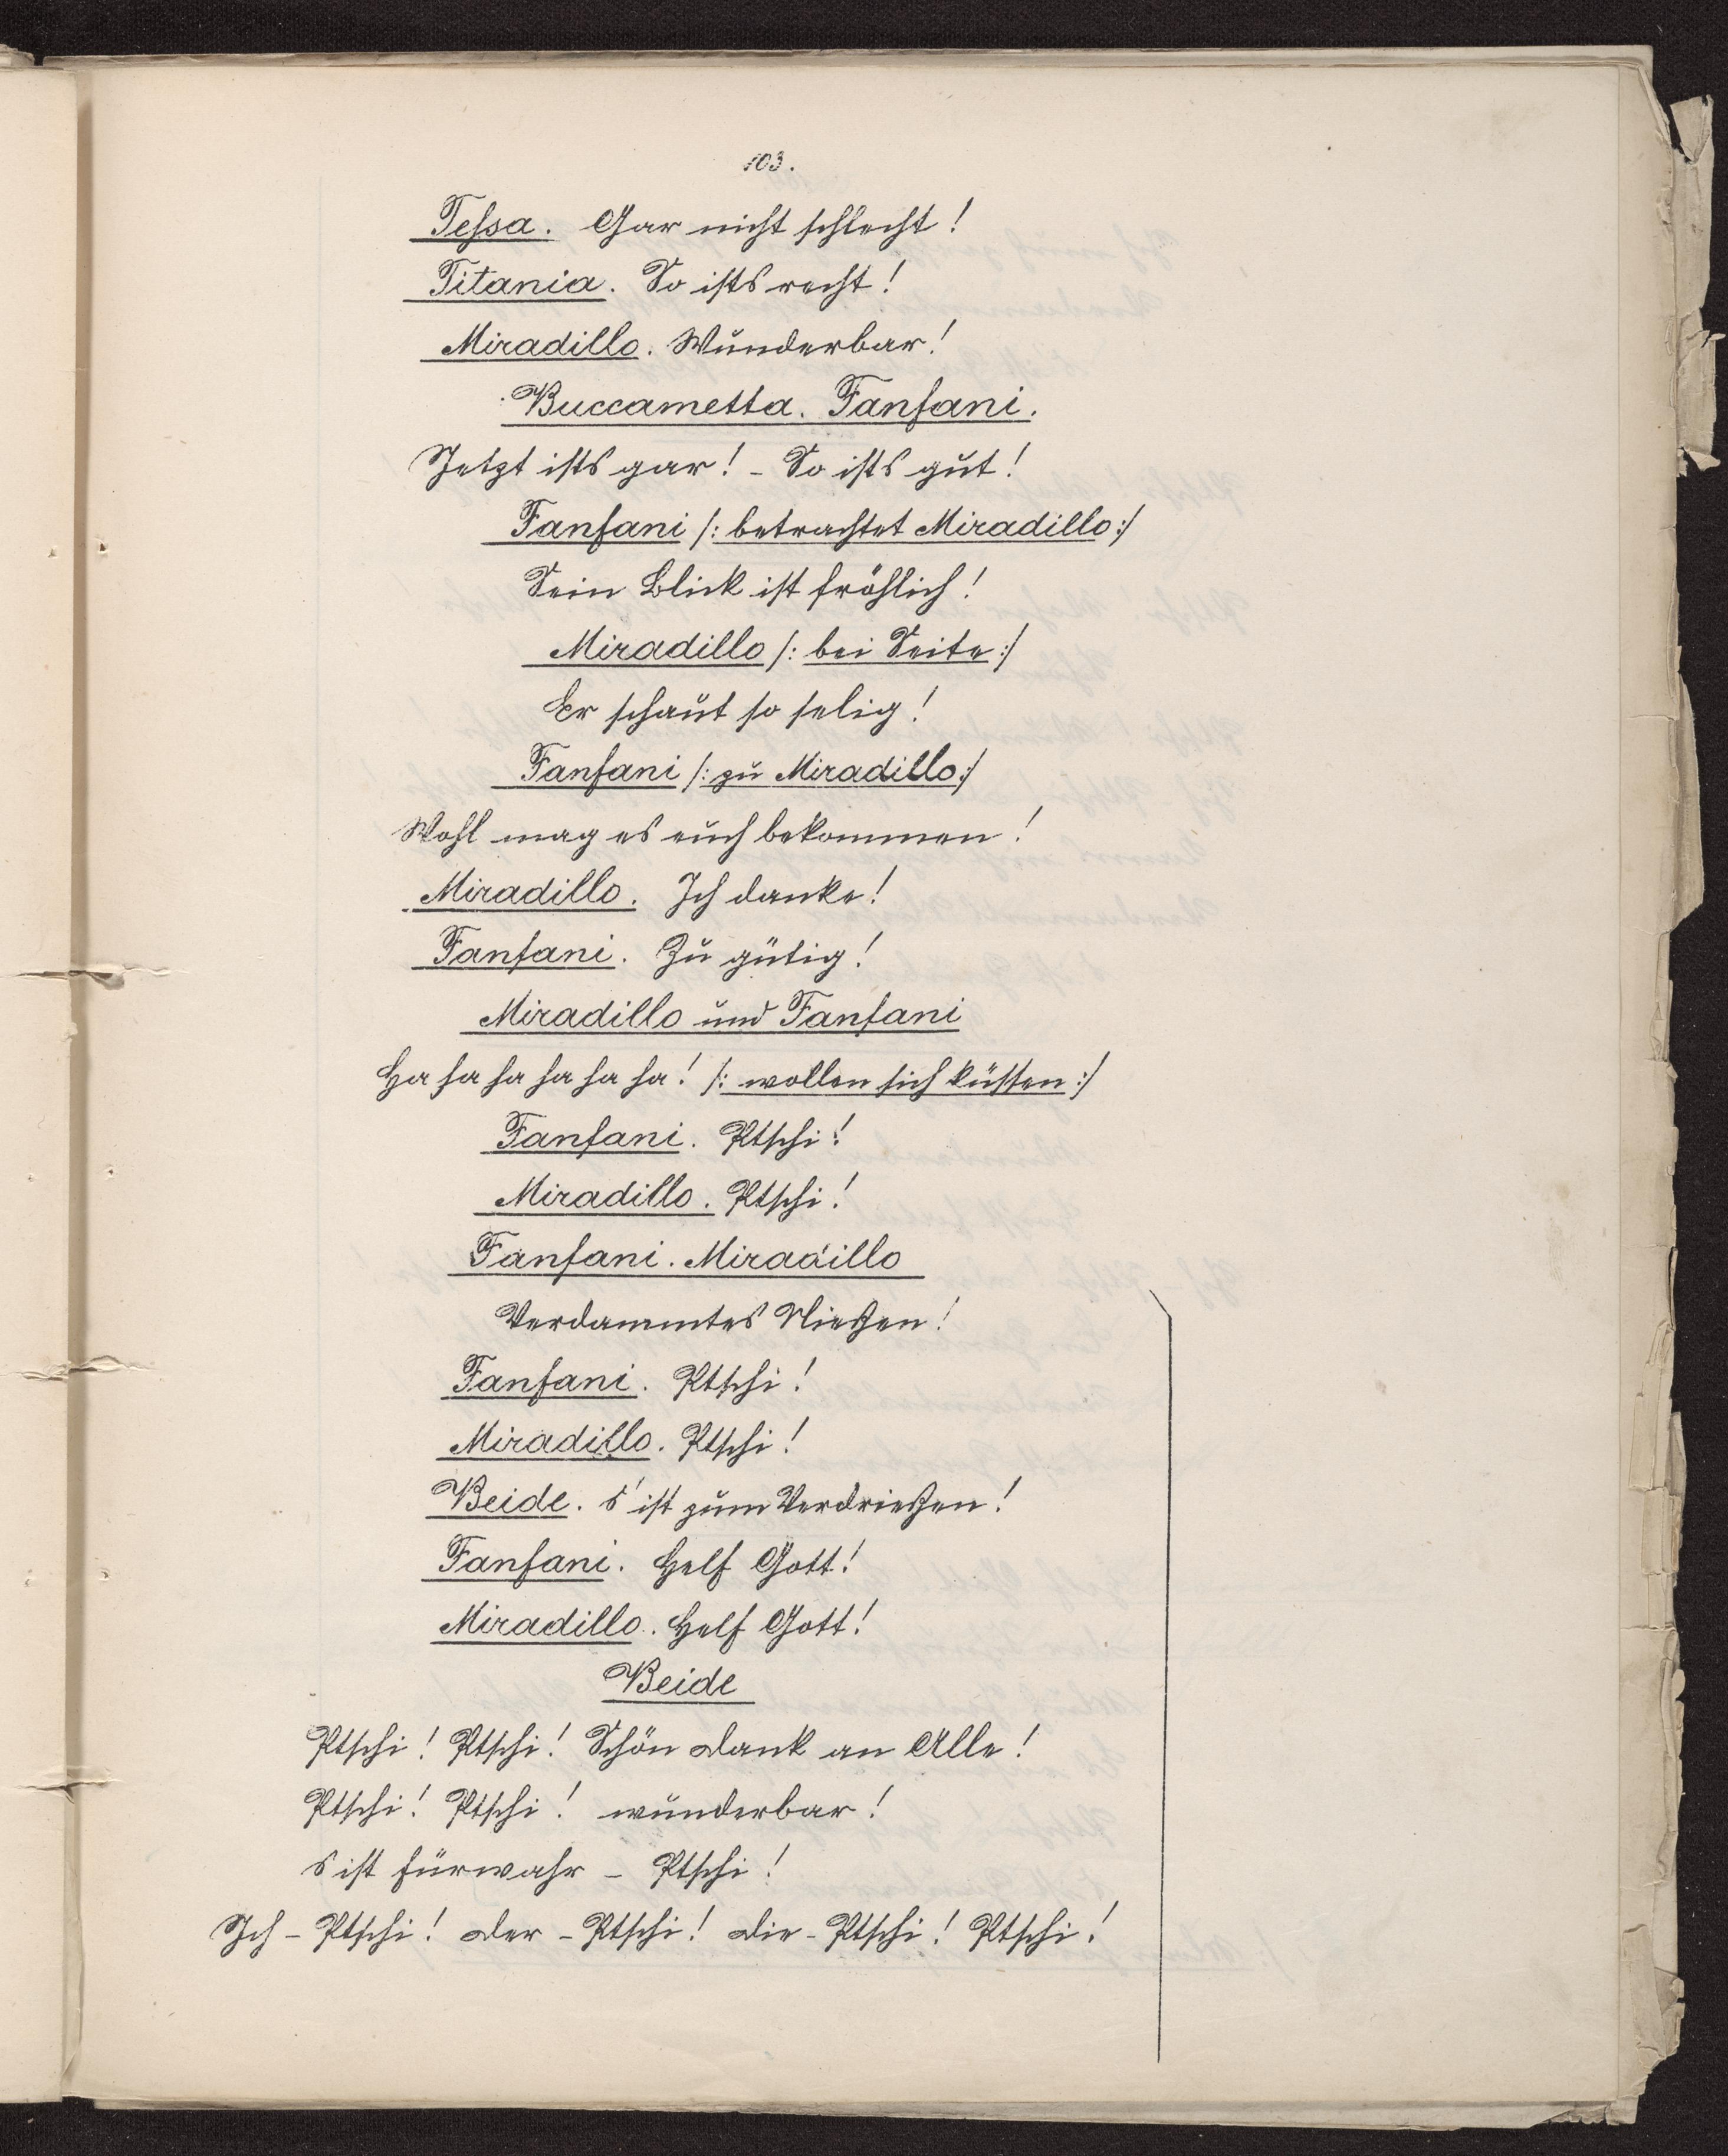 103.
Tessa. Gar nicht schlecht!
Titania. So ists recht!
Miradillo. Wunderbar!
Buccametta. Fanfani.
Jetzt ists gar! - So ists gut!
Fanfani /: betrachtet Miradillo :/
Sein Blick ist fröhlich!
Miradillo /: bei Seite :/
Er schaut so selig!
Fanfani /: zu Miradillo :/
Wohl mag es euch bekommen!
Miradillo. Ich danke!
Fanfani. Zu gütig!
Miradillo und Fanfani
Ha ha ha ha ha ha! /: wollen sich küssen :/
Fanfani. Ptschi!
Miradillo. Ptschi!
Fanfani. Miradillo
Verdammtes Nießen!
Fanfani. Ptschi!
Miradillo. Ptschi!
Beide. s'ist zum Verdrießen!
Fanfani. Helf Gott!
Miradillo. Helf Gott!
Beide
Ptschi! Ptschi! Schön Dank an Alle!
Ptschi! Ptschi! wunderbar!
s ist fürwahr - Ptschi!
Ich - Ptschi! der - Ptschi! die - Ptschi! Ptschi!